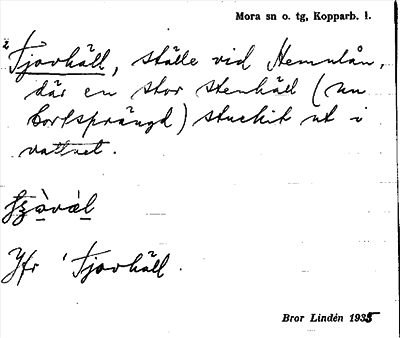 Mora sn o. tg, Kopparb. l.
2 Tjovhäll, ställe vid Hemulån,
där en stor stenhäll (nu
bortsprängd) stuckit ut i
vattnet.
Jfr 1 Tjovhäll.
Bror Lindén 1935